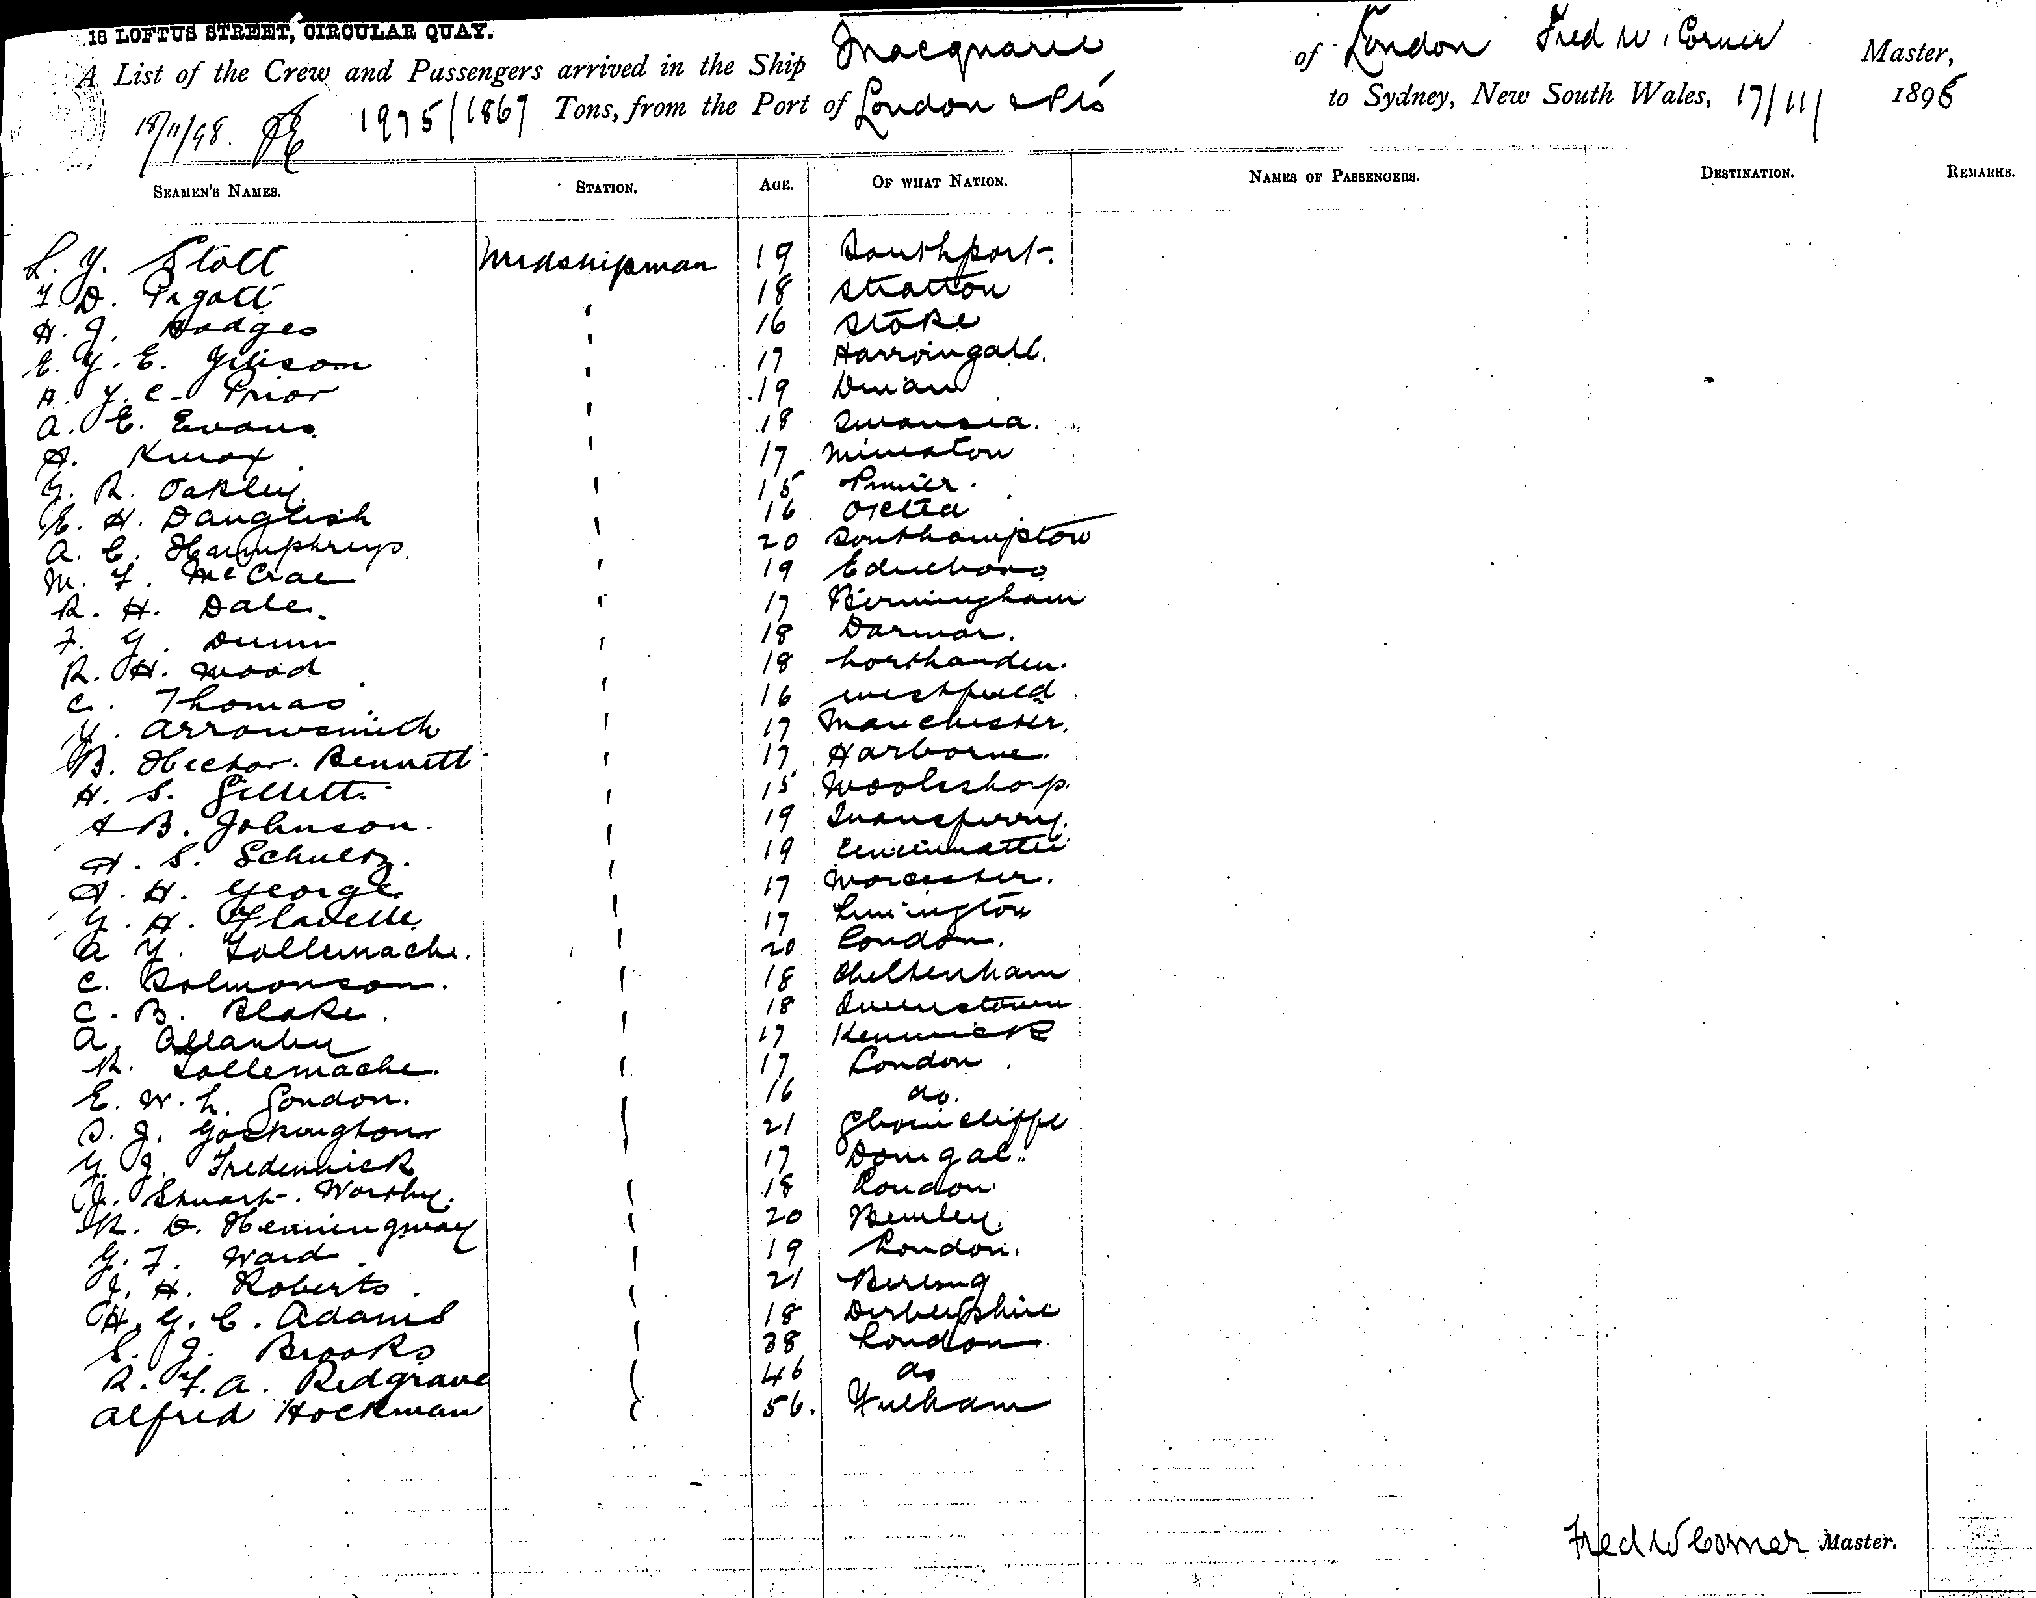 18 LOFTUS STREET, CIRCULAR QUAY.
A List of the Crew and Passengers arrived in the Ship Macquarie of London Fred W. Corner Master,
18/11/98. 1975/1867 Tons, from the Port of London to Sydney, New South Wales, 17/11/ 1898
SEAMEN'S NAMES. STATION. AGE. OF WHAT NATION. NAMES OF PASSENGERS. DESTINATION. REMARKS.
L. G. Stott Midshipman 19 Southport.
D. Pigott 18 Stratton
H. J. Hodges 16 Stoke
E. G. E. Gilison 17
H. G. C. Prior 19 Dinan
A. E. Evans 18 Swansea.
A. Knox 17
G. R. Oakley 15
E. H. Danglish 16
A. C. Humphreys 20 Southampton
M. F. McCrae 19 Edinboro
R. H. Dale. 17 Birmingham
F. G. Dunn 18
R. H. Wood 18
C. Thomas 16 Westfield
G. Arrowsmith 17 Manchester.
B. Hector. Bennett 17 Harborne.
H. S. Gillett. 15
A B. Johnson. 19 Queensferry.
A. S. Schultz. 19 Cincinnattii
A. H. George 17 Worcester.
G. H. Flavelle 17
A F. Tollemache. 20 London.
C. Solmonson. 18 Cheltenham
C. B. Blake. 18 Queenstown
A. Allanby 17
R. Tollemache. 17 London.
E. W. L. London. 16 do.
S. J. 21
G. J. Fredennick 17 Donegal.
J. Stuart. Wortley. 18 London
R. D. Hemingway 20
G. F. Ward 19 London.
J. H. Roberts. 21
H. G. C. Adams 18 Derbeyshire
S. J. Brooks 38 London
R. F. A. Redgrave 46 do
Alfred Hockman 56. Fulham
Fred W Corner Master.